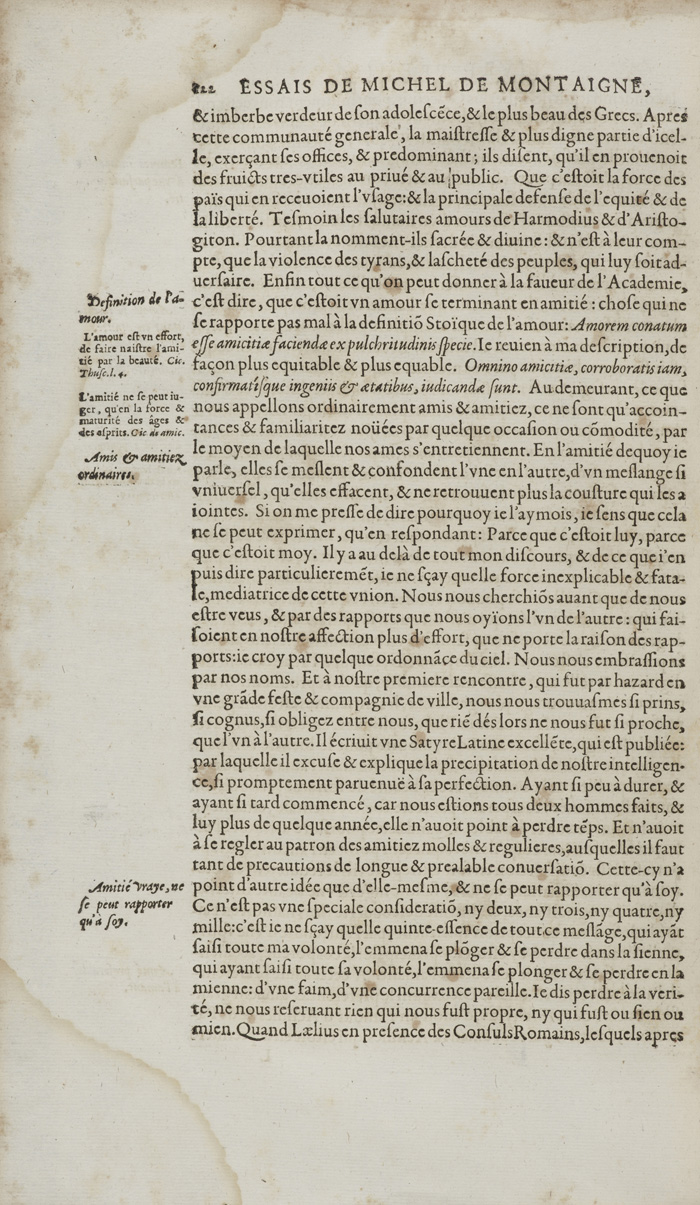 122 ESSAIS DE MICHEL DE MONTAIGNE,
& imberbe verdeur de ſon adoleſcẽce, & le plus beau des Grecs. Apres
cette communauté generale, la maiſtreſſe & plus digne partie d'icel-
le, exerçant ſes offices, & predominant ; ils diſent, qu'il en prouenoit
des fruicts tres-vtiles au priué & au public. Que c'eſtoit la force des
païs qui en receuoient l'vſage: & la principale defenſe de l'equité & de
la liberté. Teſmoin les ſalutaires amours de Harmodius & d'Ariſto-
giton. Pourtant la nomment-ils ſacrée & diuine : & n'eſt à leur com-
pte, que la violence des tyrans, & laſcheté des peuples, qui luy ſoit ad-
uerſaire. Enfin tout ce qu'on peut donner à la faueur de l'Academie,
c'eſt dire, que c'eſtoit vn amour ſe terminant en amitié : choſe qui ne
ſe rapporte pas mal à la definitiõ Stoïque de l'amour: Amorem conatum
eſſe amicitiæ faciendæ ex pulchritudinis ſpecie. Ie reuien à ma deſcription, de
façon plus equitable & plus equable. Omnino amicitiæ, corroboratis iam,
confirmatíſque ingeniis & ætatibus, iudicandæ ſunt. Au demeurant, ce que
nous appellons ordinairement amis & amitiez, ce ne ſont qu'accoin-
tances & familiaritez noüées par quelque occaſion ou cõmodité, par
le moyen de laquelle nos ames s'entretiennent. En l'amitié dequoy ie
parle, elles ſe meſlent & confondent l'vne en l'autre, d'vn meſlange ſi
vniuerſel, qu'elles effacent, & ne retrouuent plus la couſture qui les a
iointes. Si on me preſſe de dire pourquoy ie l'aymois, ie ſens que cela
ne ſe peut exprimer, qu'en reſpondant: Parce que c'eſtoit luy, parce
que c'eſtoit moy. Il y a au delà de tout mon diſcours, & de ce que i'en
puis dire particulieremẽt, ie ne ſçay quelle force inexplicable & fata-
le, mediatrice de cette vnion. Nous nous cherchiõs auant que de nous
eſtre veus, & par des rapports que nous oyïons l'vn de l'autre : qui fai-
ſoient en noſtre affection plus d'effort, que ne porte la raiſon des rap-
ports: ie croy par quelque ordonnãce du ciel. Nous nous embraſſions
par nos noms. Et à noſtre premiere rencontre, qui fut par hazard en
vne grãde feſte & compagnie de ville, nous nous trouuaſmes ſi prins,
ſi cognus, ſi obligez entre nous, que riẽ dés lors ne nous fut ſi proche,
que l'vn à l'autre. Il écriuit vne Satyre Latine excellẽte, qui eſt publiée:
par laquelle il excuſe & explique la precipitation de noſtre intelligen-
ce, ſi promptement paruenuë à ſa perfection. Ayant ſi peu à durer, &
ayant ſi tard commencé, car nous eſtions tous deux hommes faits, &
luy plus de quelque année, elle n'auoit point à perdre tẽps. Et n'auoit
à ſe regler au patron des amitiez molles & regulieres, auſquelles il faut
tant de precautions de longue & prealable conuerſatiõ. Cette-cy n'a
point d'autre idée que d'elle-meſme, & ne ſe peut rapporter qu'à ſoy.
Ce n'eſt pas vne ſpeciale conſideratiõ, ny deux, ny trois, ny quatre, ny
mille: c'eſt ie ne ſçay quelle quinte-eſſence de tout ce meſlãge, qui ayãt
ſaiſi toute ma volonté, l'emmena ſe plõger & ſe perdre dans la ſienne,
qui ayant ſaiſi toute ſa volonté, l'emmena ſe plonger & ſe perdre en la
mienne: d'vne faim, d'vne concurrence pareille. Ie dis perdre à la veri-
té, ne nous reſeruant rien qui nous fuſt propre, ny qui fuſt ou ſien ou
mien. Quand Lælius en preſence des Conſuls Romains, leſquels apres
Definition de l'a-
mour.
L'amour eſt vn effort,
de faire naiſtre l'ami-
tié par la beauté. Cic.
Thuſc. l. 4.
L'amitié ne ſe peut iu-
ger, qu'en la force &
maturité des âges &
des eſprits. Cic de amic.
Amis & amitiez
ordinaires.
Amitié vraye, ne
ſe peut rapporter
qu'à ſoy.